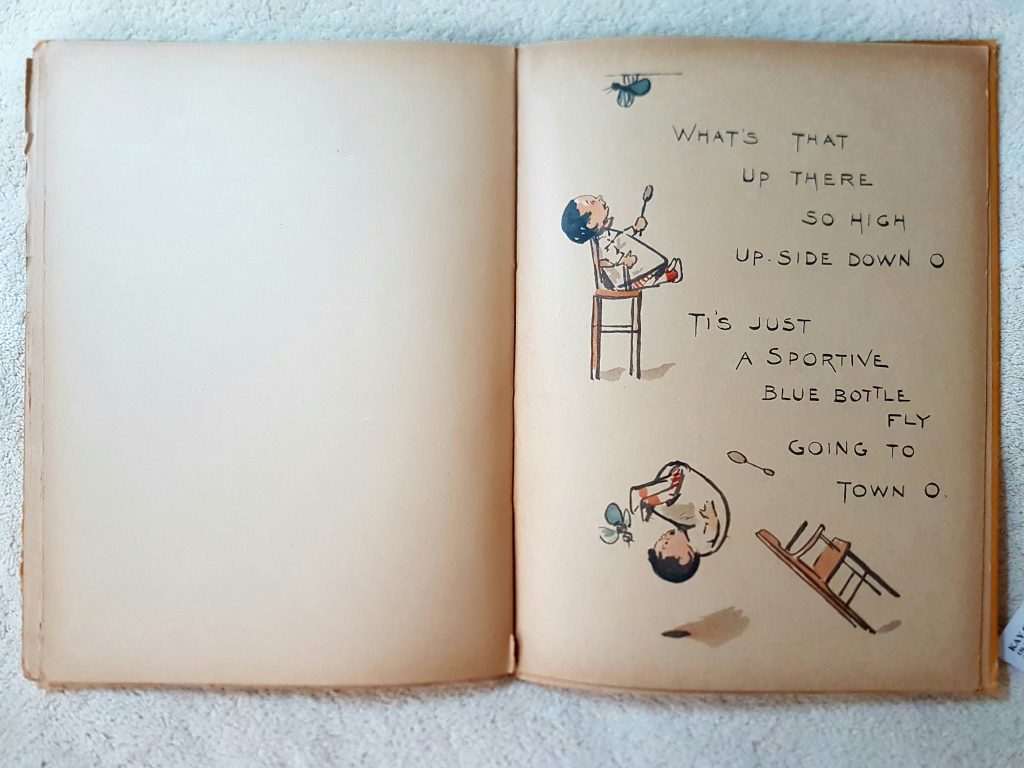 WHAT'S THAT
UP THERE
SO HIGH
UP-SIDE DOWN O
TI'S JUST
A SPORTIVE
BLUE BOTTLE
FLY
GOING TO
TOWN O.